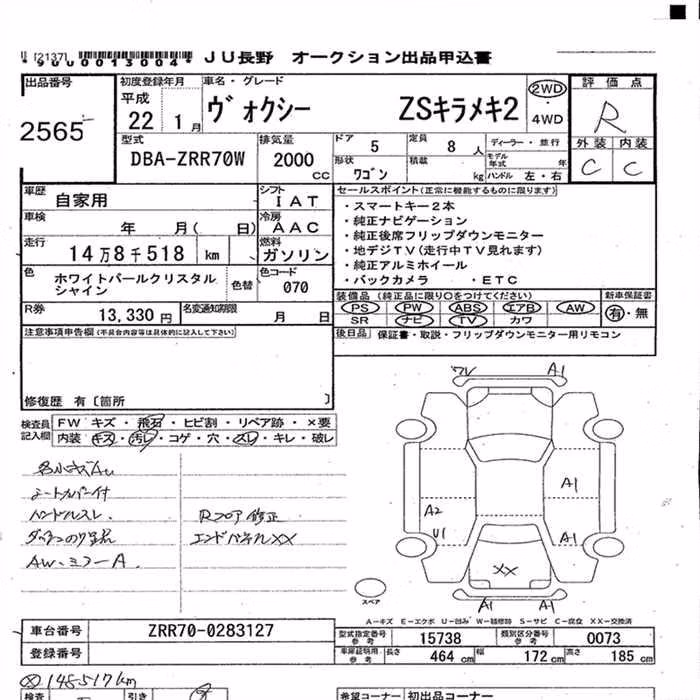 [2137]
*9000013004*
JU長野 オークション出品申込書
出品番号
2565
初度登録年月
平成
22 1月
車名・グレード
ヴォクシー ZSキラメキ2
2WD
・
4WD
評価点
R
外装 内装
C C
型式
DBA-ZRR70W
排気量
2000 cc
ドア
5
定員
8 人
形状
ワゴン
積載
kg
ディーラー・並行
モデル年式 年
ハンドル 左・右
車歴
自家用
シフト
IAT
車検
年 月( 日)
冷房
AAC
走行
14万8千518 km
燃料
ガソリン
色
ホワイトパールクリスタル
シャイン
色替
色コード
070
R券
13,330 円
名変通知期限
月 日
セールスポイント(正常に機能するものに限ります)
・スマートキー2本
・純正ナビゲーション
・純正後席フリップダウンモニター
・地デジTV(走行中TV見れます)
・純正アルミホイール
・バックカメラ ・ETC
装備品(純正品に限り○をつけてください)
PS PW ABS エアB AW
SR ナビ TV カワ
新車保証書
有・無
後日品 保証書・取説・フリップダウンモニター用リモコン
注意事項申告欄(不具合内容等は具体的に記入して下さい)
修復歴 有〔箇所 〕
検査員
記入欄
FW キズ・飛石・ヒビ割・リペア跡・×要
内装 キズ・汚レ・コゲ・穴・スレ・キレ・破レ
シートカバー付
ハンドルスレ
AW・ミラーA
Rフロア修正
エンドパネルXX
A1
A1
A2
U1
A1
XX
A1 A1
スペア
A-キズ E-エクボ U-凹み W-補修跡 S-サビ C-腐食 XX-交換済
車台番号
ZRR70-0283127
登録番号
型式指定番号
参考
15738
類別区分番号
参考
0073
車庫証明用
参考
長さ 464 cm 幅 172 cm 高さ 185 cm
148517km
検査 引き
希望コーナー 初出品コーナー